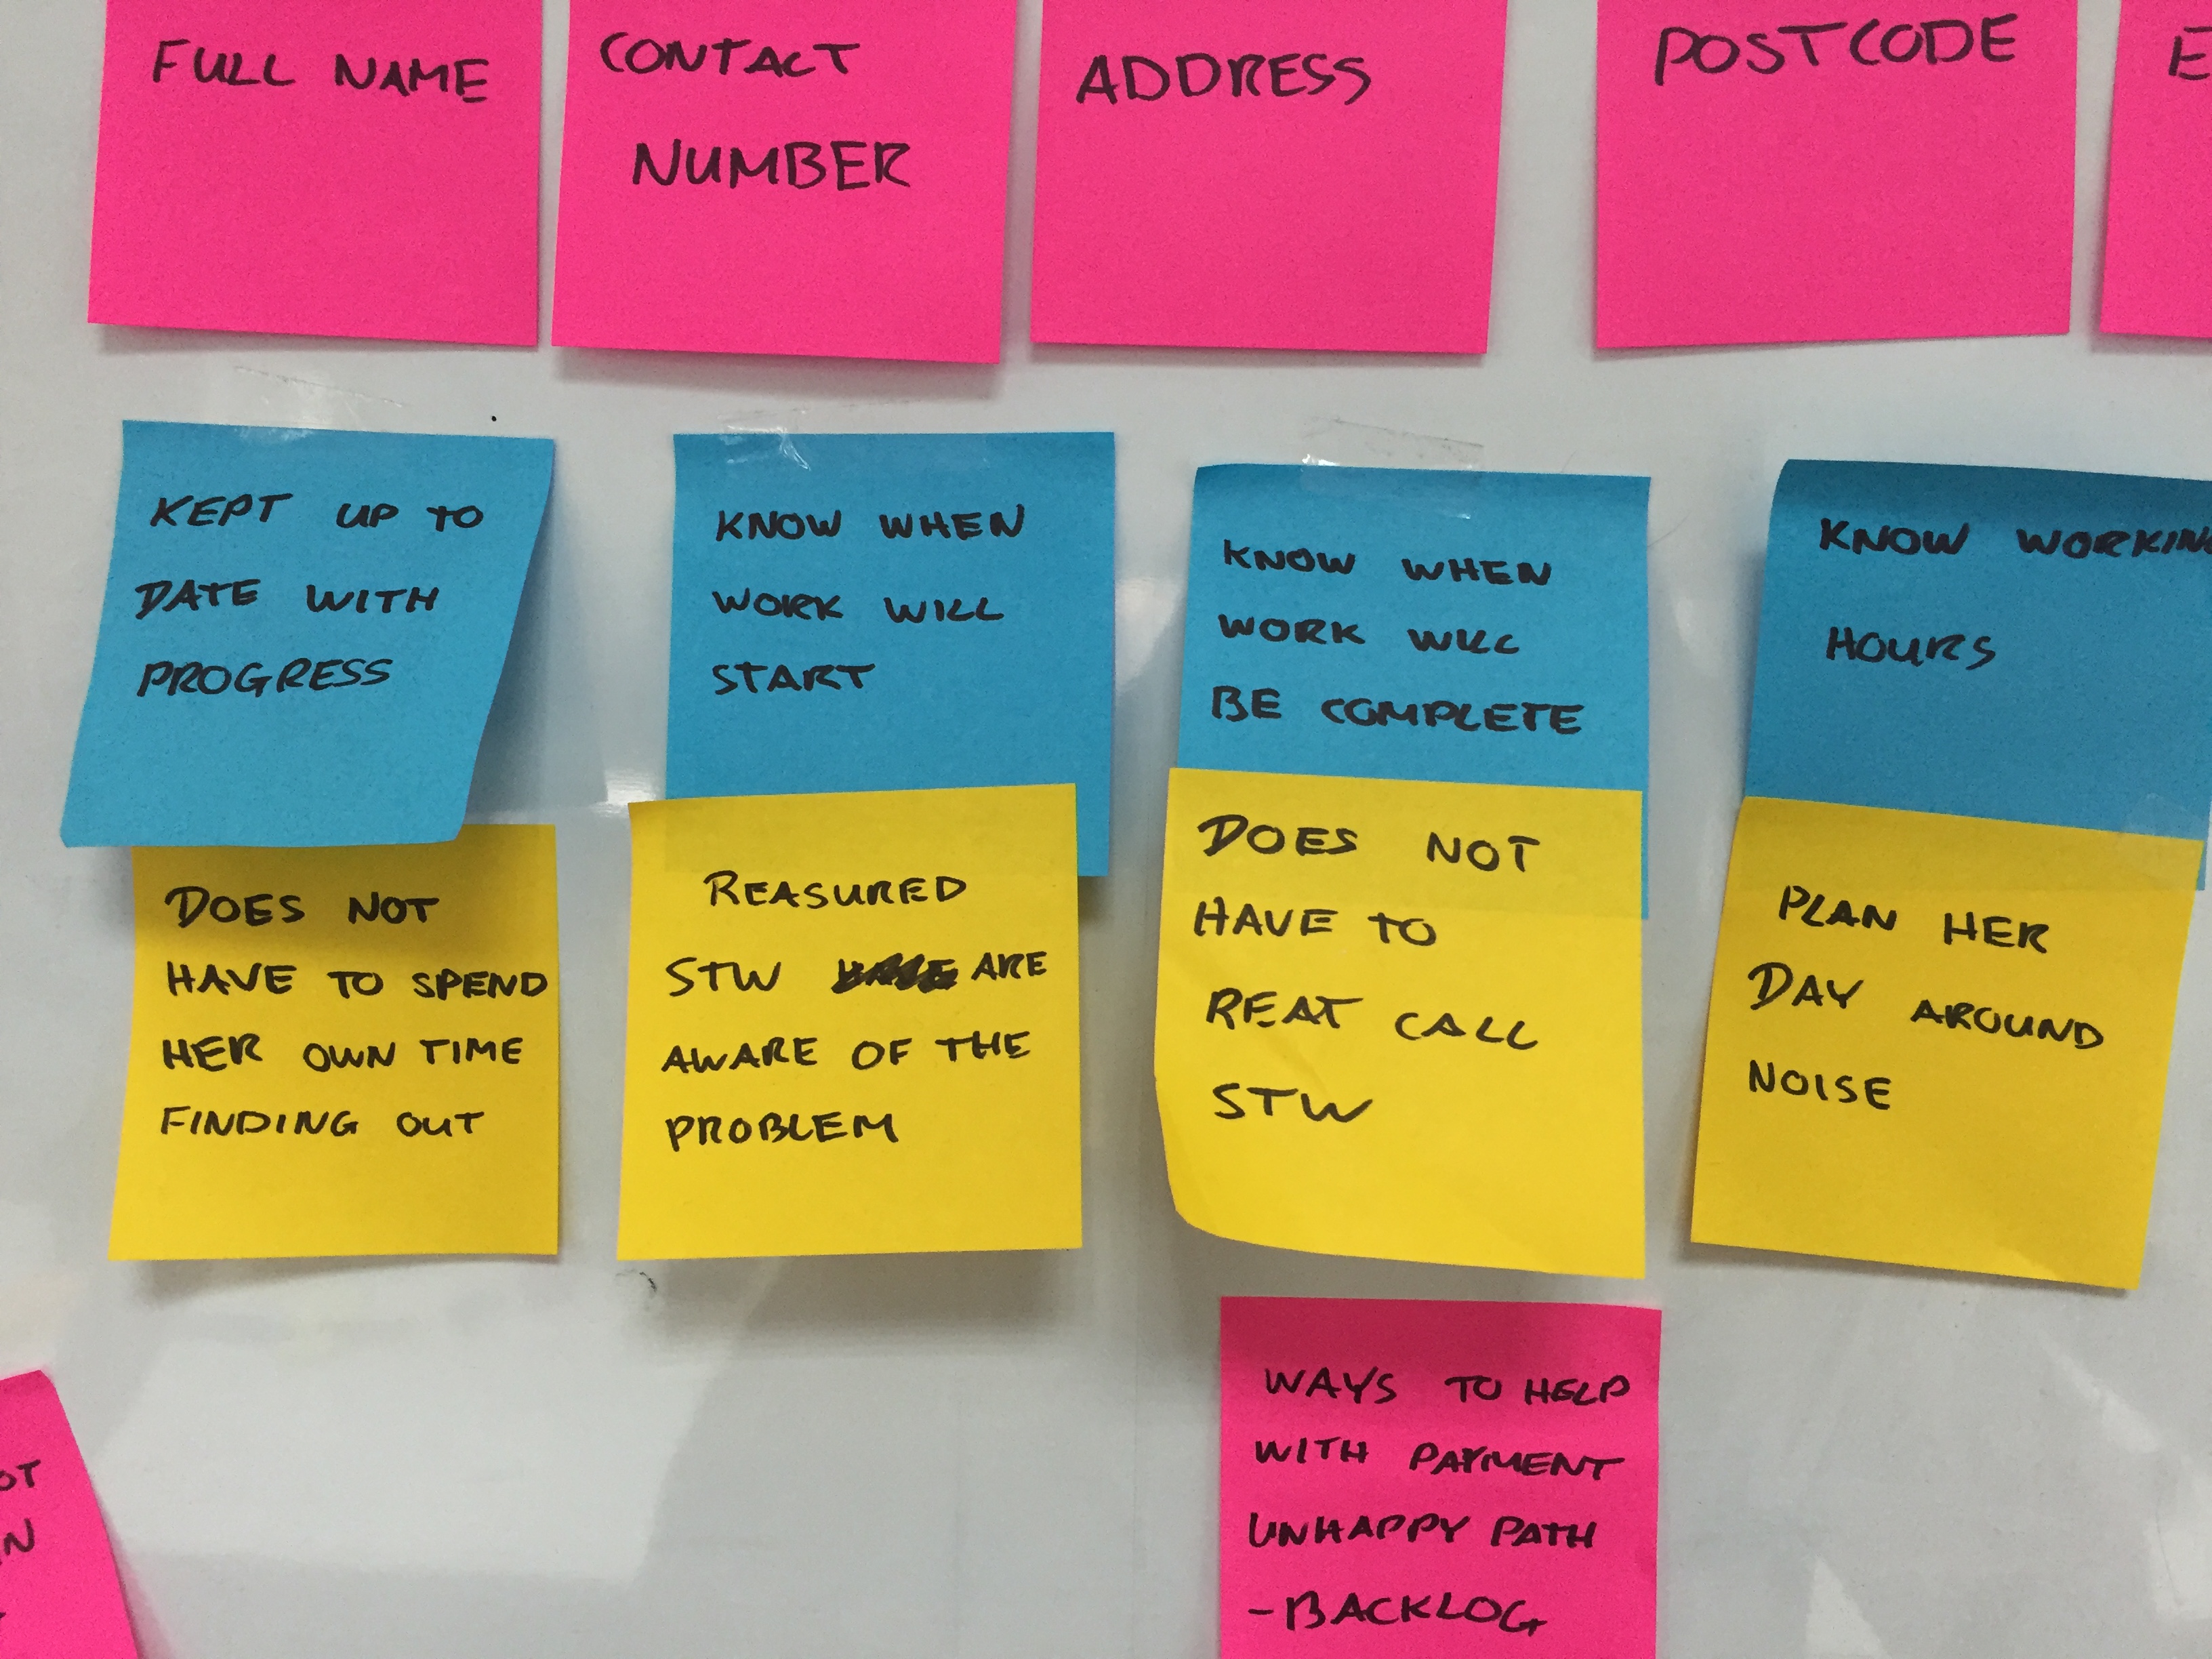 FULL NAME
CONTACT
NUMBER
ADDRESS
POSTCODE
E
KEPT UP TO
DATE WITH
PROGRESS
KNOW WHEN
WORK WILL
START
KNOW WHEN
WORK WILL
BE COMPLETE
KNOW WORKING
HOURS
DOES NOT
HAVE TO SPEND
HER OWN TIME
FINDING OUT
REASURED
STW ARE
AWARE OF THE
PROBLEM
DOES NOT
HAVE TO
REAT CALL
STW
PLAN HER
DAY AROUND
NOISE
WAYS TO HELP
WITH PAYMENT
UNHAPPY PATH
-BACKLOG